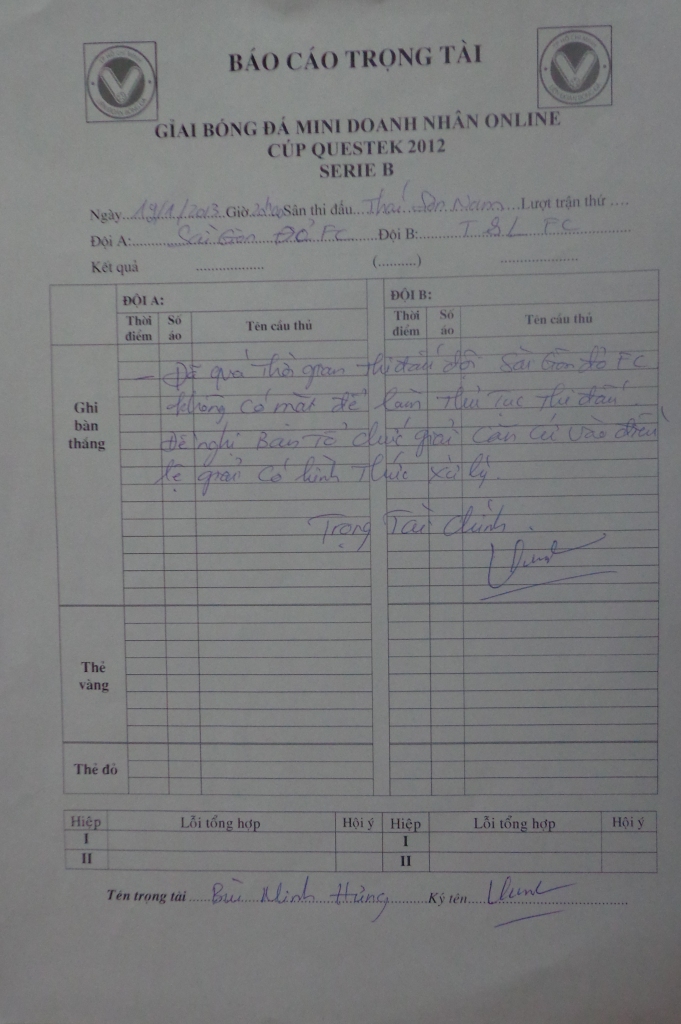 BÁO CÁO TRỌNG TÀI
GIẢI BÓNG ĐÁ MINI DOANH NHÂN ONLINE
CÚP QUESTEK 2012
SERIE B
Ngày 19/1/2013 Giờ Sân thi đấu Thái Sơn Nam Lượt trận thứ ....
Đội A: Sài Gòn Đỏ FC Đội B: TSL FC
Kết quả .................. (..........) ....................
ĐỘI A: ĐỘI B:
Thời điểm Số áo Tên cầu thủ Thời điểm Số áo Tên cầu thủ
Ghi bàn tháng
- Đã quá thời gian thi đấu đội Sài Gòn đỏ FC
không có mặt để làm thủ tục thi đấu.
Đề nghị Ban tổ chức giải căn cứ vào điều
lệ giải có hình thức xử lý.
Trọng Tài chính.
Thẻ vàng
Thẻ đỏ
Hiệp Lỗi tổng hợp Hội ý Hiệp Lỗi tổng hợp Hội ý
I I
II II
Tên trọng tài Bùi Minh Hùng Ký tên